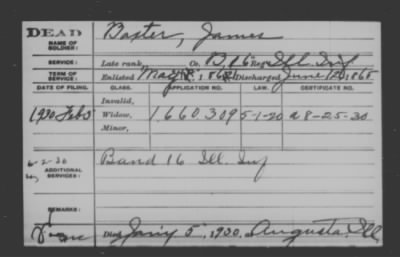 DEAD
NAME OF SOLDIER: Baxter, James
SERVICE: Late rank, Co. B, 16 Reg't Ill. Inf
TERM OF SERVICE: Enlisted May 186 Discharged June 186
DATE OF FILING. CLASS. APPLICATION NO. LAW. CERTIFICATE NO.
Invalid,
1930 Feb 5 Widow, 1660309 5-1-20 A 8-25-30
Minor,
6-2-30
ADDITIONAL SERVICES: Band 16 Ill. Inf
REMARKS:
Died Jan'y 5, 1930, Augusta, Ill